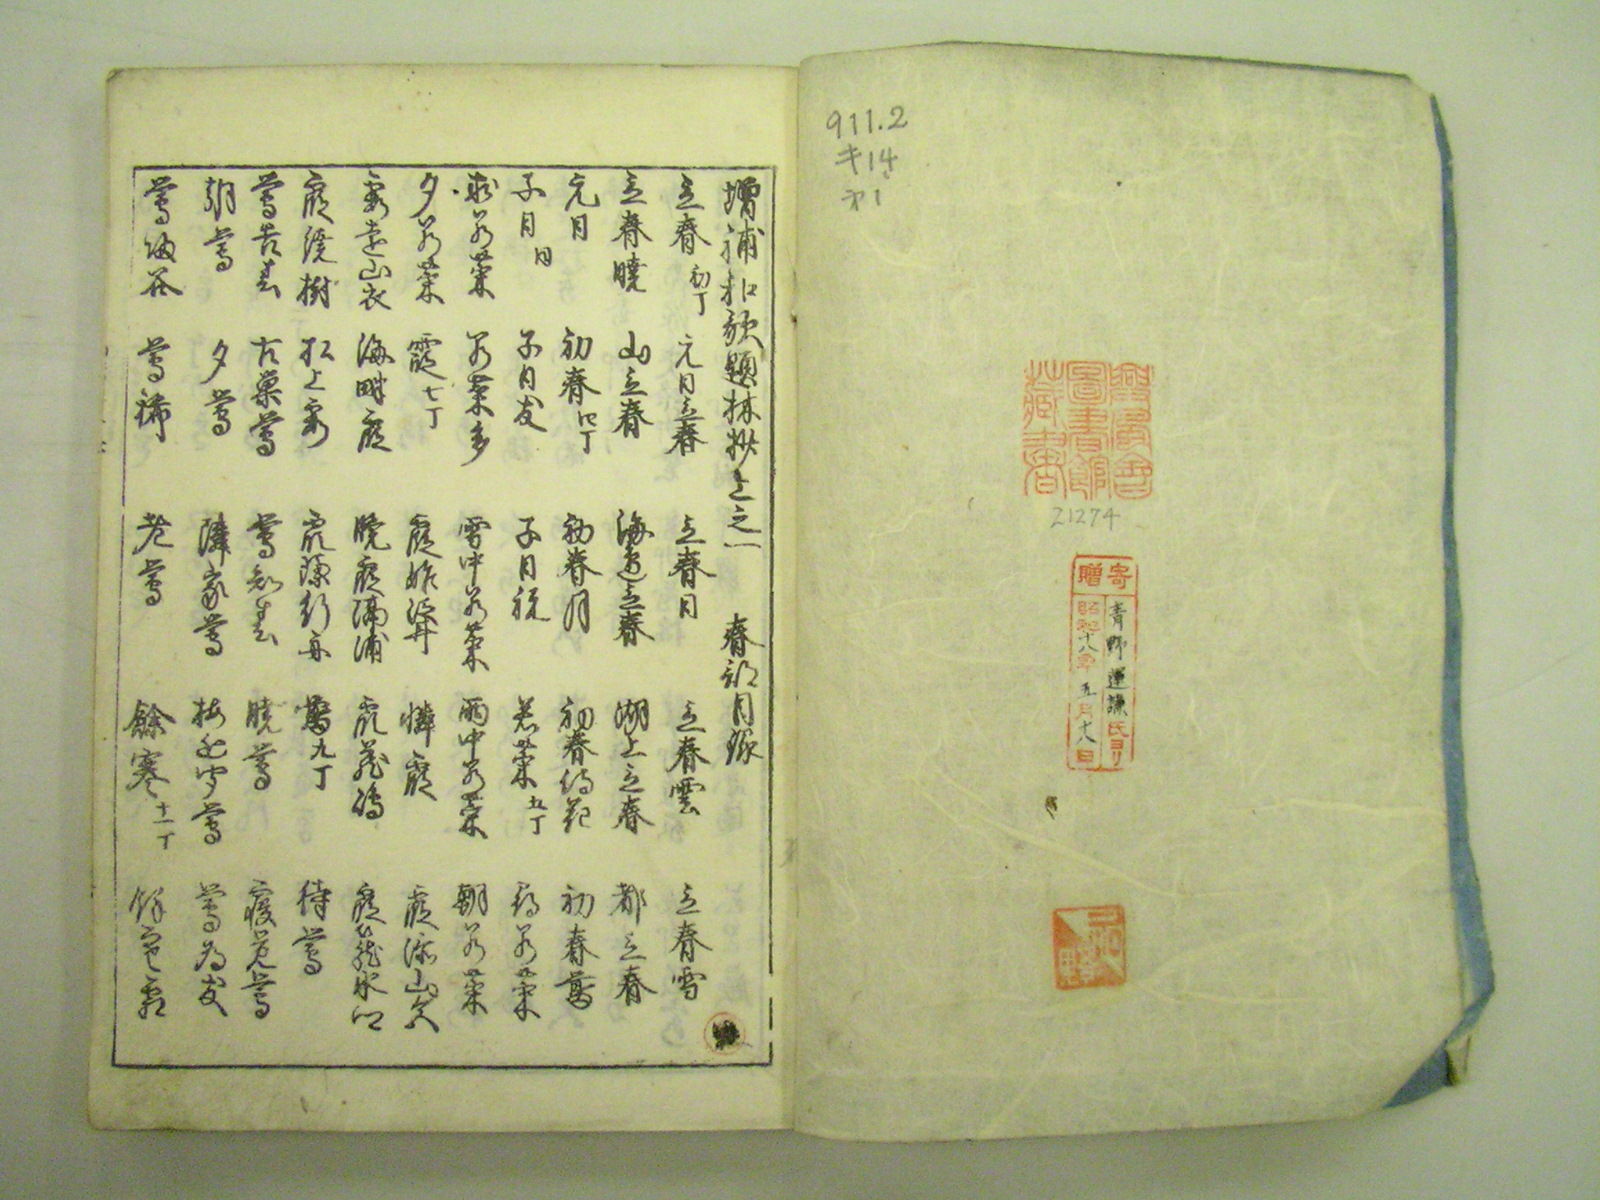 911.2
キ14
才1
興風會
圖書館
藏書
21274
寄贈
青野運謙氏ヨリ
昭和十八年五月十八日
増補和歌題林抄上之一 春部目録
立春 初丁 元日立春 立春日 立春雲 立春雪
立春暁 山立春 海邊立春 湖上立春 都立春
元日 初春 四丁 初春月 初春待花 初春鶯
子日 同 子日友 子日祝 若菜 五丁 若菜
求若菜 若菜多 雪中若菜 雨中若菜 朝若菜
夕若菜 霞 七丁 霞 憐霞 霞添山
霞遠山衣 海畔霞 暁霞隔浦 霞 霞
霞繞樹 松上霞 霞 鶯 九丁 待鶯
鶯告春 古巣鶯 鶯知春 暁鶯 寝覚鶯
朝鶯 夕鶯 隣家鶯 梅近聞鶯 鶯為友
鶯帰谷 鶯稀 老鶯 餘寒 十一丁 餘寒霜